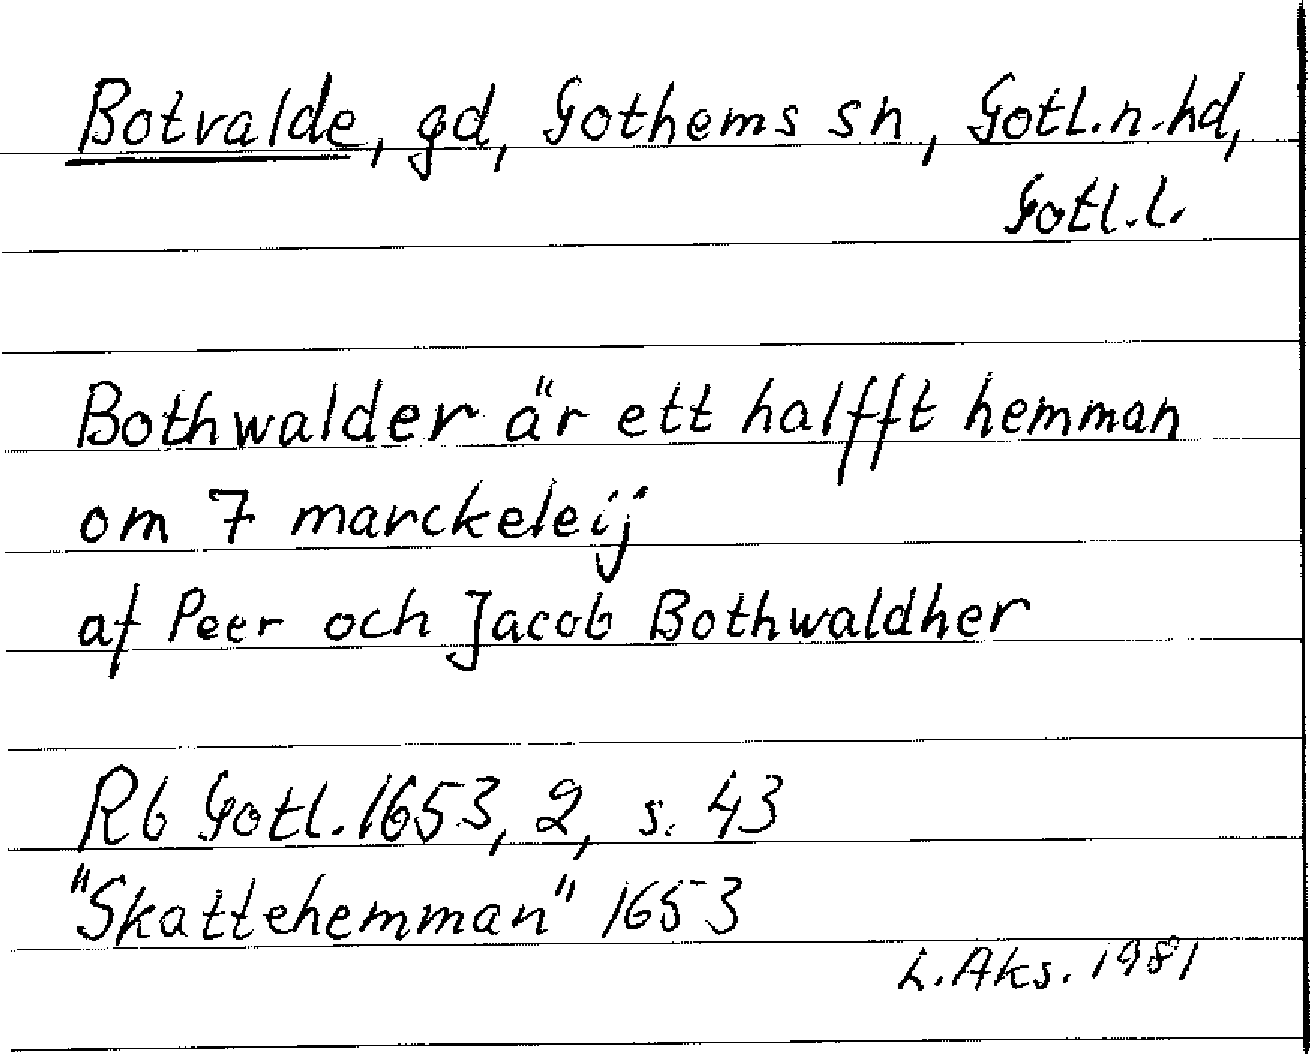 Botvalde, gd, Gothems sn, Gotl.n.hd,
Gotl.l.
Bothwalder är ett halfft hemman
om 7 marckeleij
af Peer och Jacob Bothwaldher
Rb Gotl. 1653, 2, s. 43
"Skattehemman" 1653
L. Aks. 1981